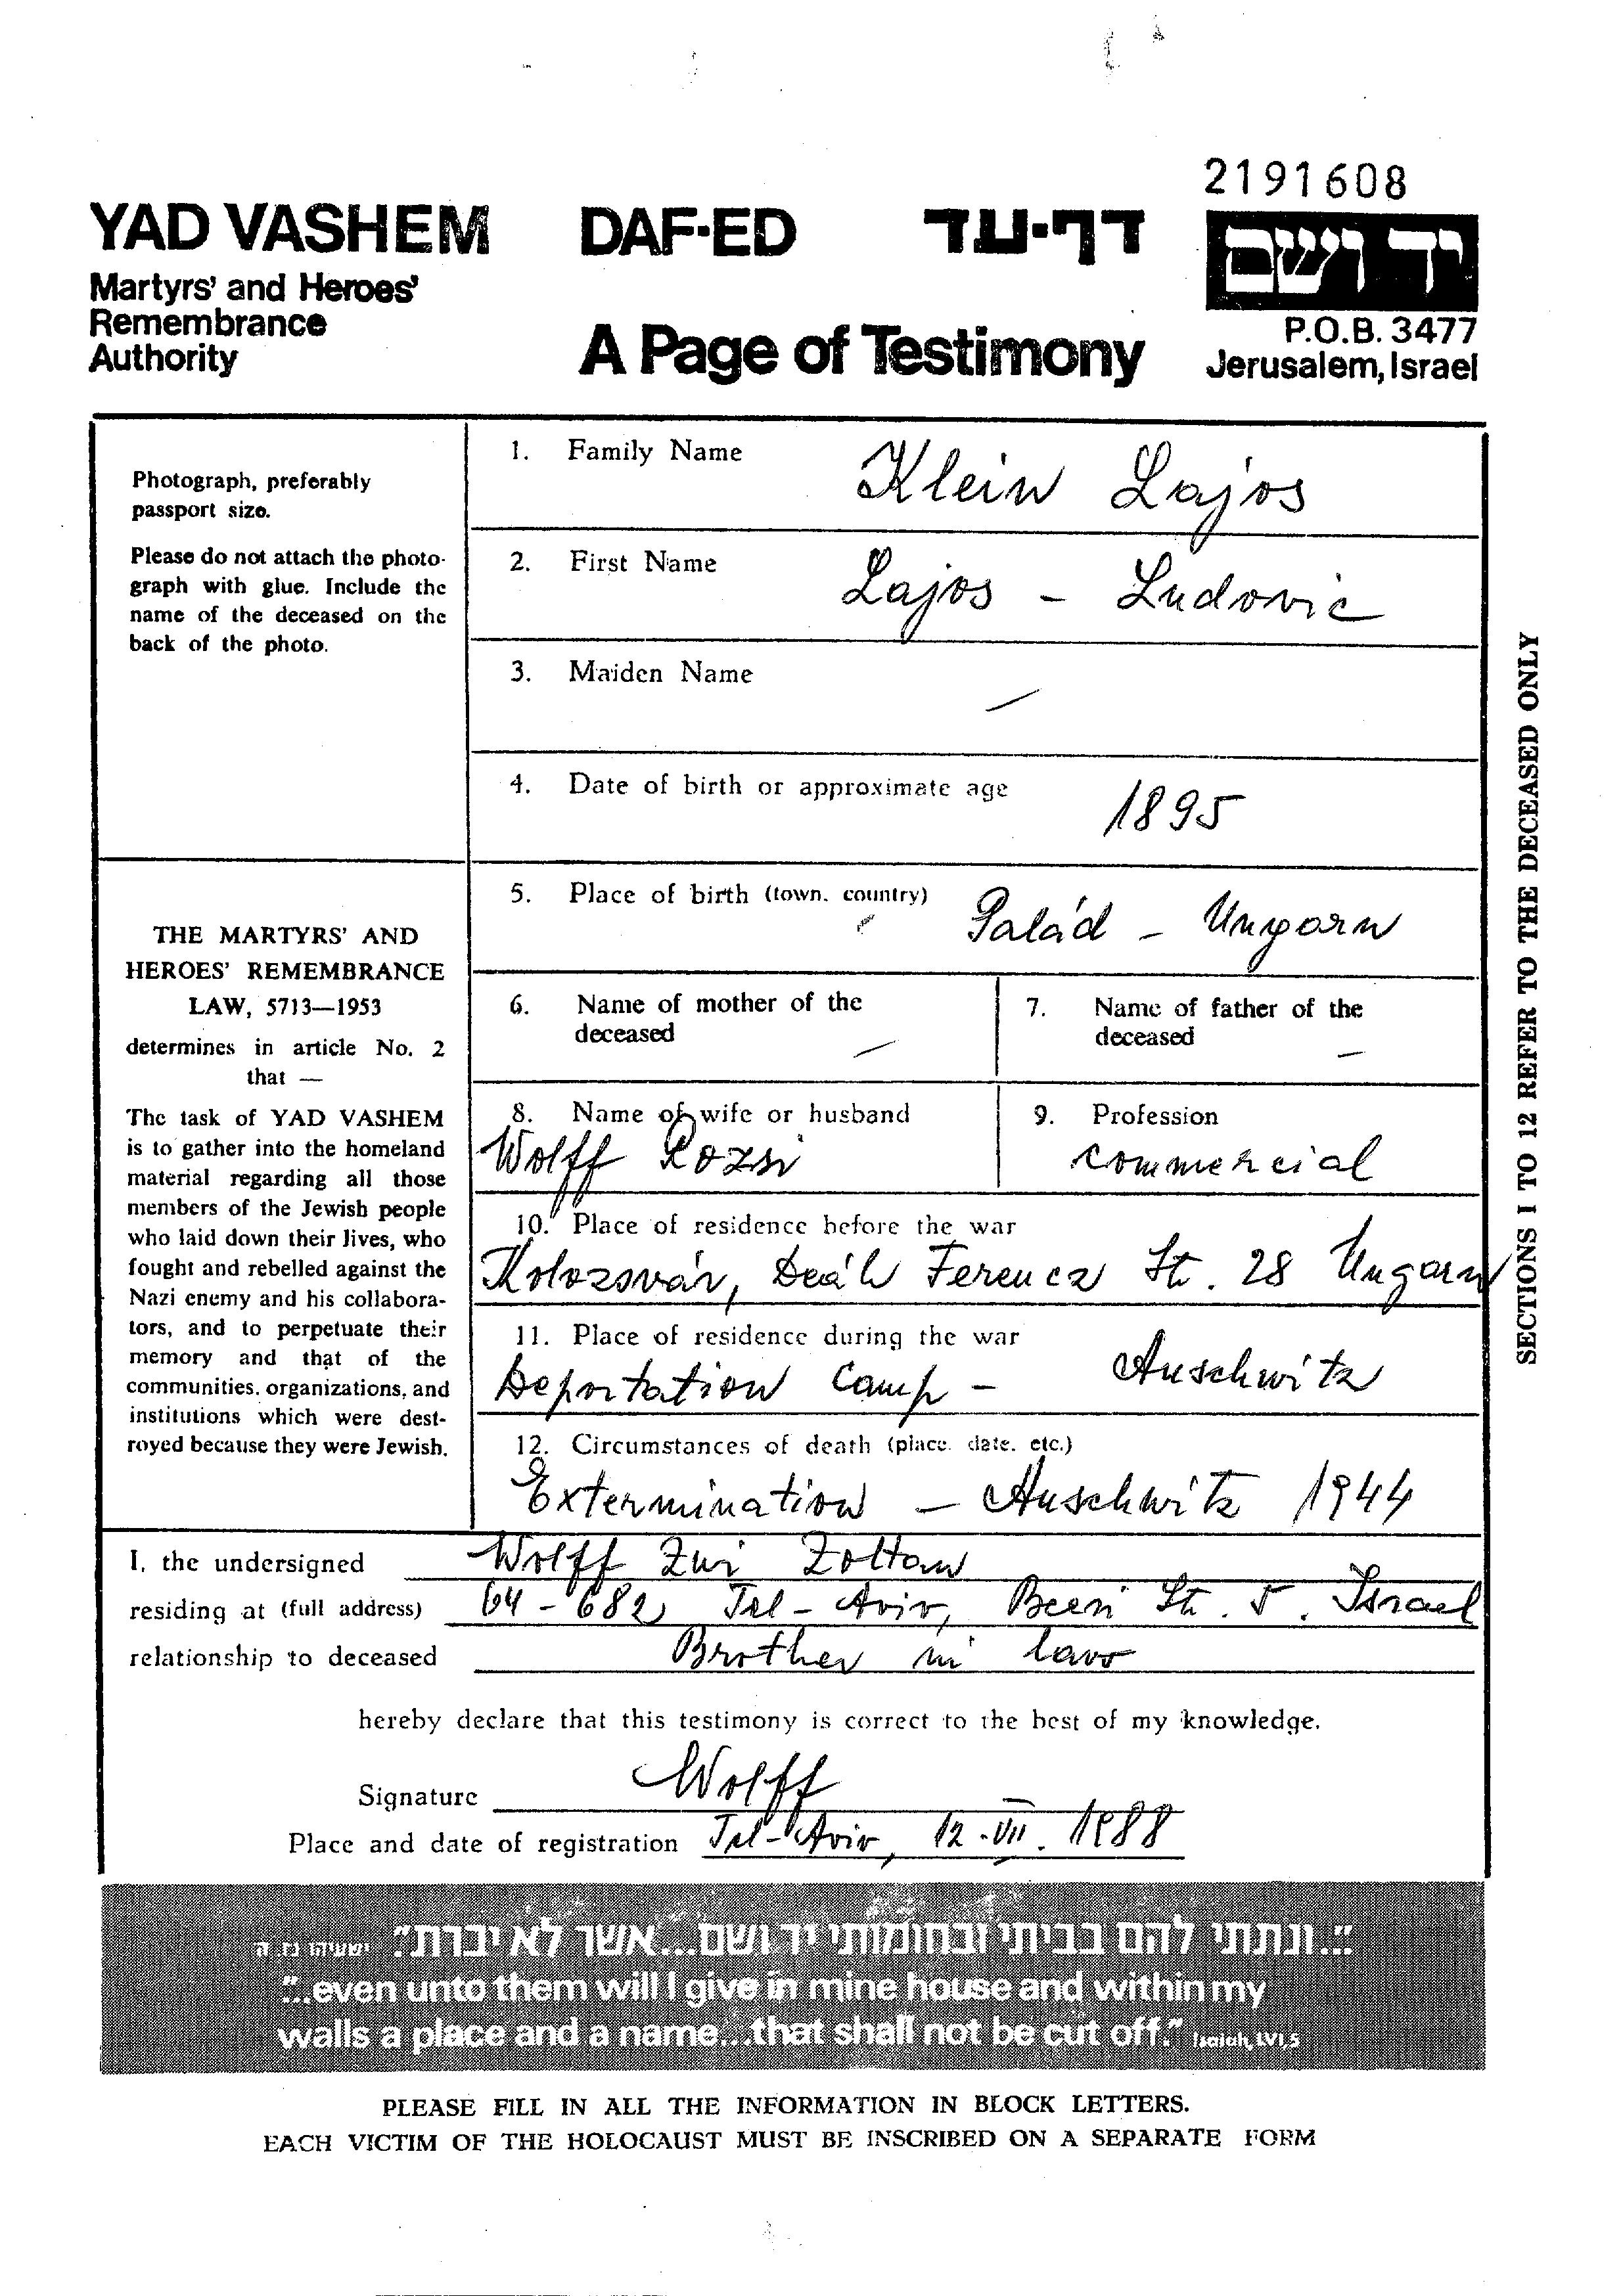 2191608
YAD VASHEM DAF-ED דף-עד יד ושם
Martyrs' and Heroes'
Remembrance
Authority
A Page of Testimony
P.O.B. 3477
Jerusalem, Israel
Photograph, preferably
passport size.
Please do not attach the photo-
graph with glue. Include the
name of the deceased on the
back of the photo.
THE MARTYRS' AND
HEROES' REMEMBRANCE
LAW, 5713—1953
determines in article No. 2
that —
The task of YAD VASHEM
is to gather into the homeland
material regarding all those
members of the Jewish people
who laid down their lives, who
fought and rebelled against the
Nazi enemy and his collabora-
tors, and to perpetuate their
memory and that of the
communities, organizations, and
institutions which were dest-
royed because they were Jewish.
1. Family Name Klein Lajos
2. First Name Lajos - Ludovic
3. Maiden Name —
4. Date of birth or approximate age 1895
5. Place of birth (town, country) Palád - Ungarn
6. Name of mother of the
deceased —
7. Name of father of the
deceased —
8. Name of wife or husband
Wolff Rozsi
9. Profession
commercial
10. Place of residence before the war
Kolozsvár, Deák Ferencz St. 28 Ungarn
11. Place of residence during the war
Deportation Camp - Auschwitz
12. Circumstances of death (place, date, etc.)
Extermination - Auschwitz 1944
SECTIONS 1 TO 12 REFER TO THE DECEASED ONLY
I, the undersigned Wolff Zwi Zoltan
residing at (full address) 64-682 Tel-Aviv, Beeri St. 5. Israel
relationship to deceased Brother in law
hereby declare that this testimony is correct to the best of my knowledge.
Signature Wolff
Place and date of registration Tel-Aviv, 12.VII.1988
"...ונתתי להם בביתי ובחומותי יד ושם...אשר לא יכרת". ישעיהו נו, ה
"...even unto them will I give in mine house and within my
walls a place and a name...that shall not be cut off." Isaiah, LVI, 5
PLEASE FILL IN ALL THE INFORMATION IN BLOCK LETTERS.
EACH VICTIM OF THE HOLOCAUST MUST BE INSCRIBED ON A SEPARATE FORM